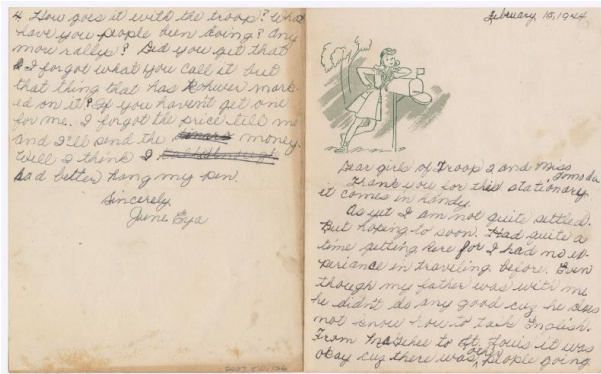 4 How goes it with the troop? What
have you people been doing? Any
more rallys? Did you get that
I forgot what you call it but
that thing that has Rohwer mark-
ed on it? If you havent get one
for me. I forgot the price tell me
and I'll send the money.
Well I think I
had better hang my pen.
Sincerely,
June
February 15, 1944
Dear girls of Troop 2 and Miss
Thank you for this stationary
it comes in handy.
As yet I am not quite settled.
But hoping to soon. Had quite a
time getting here for I had no ex-
periance in traveling before. Even
though my father was with me
he didn't do any good cuz he does
not know how to talk English.
From McGehee to St. Louis it was
okay cuz there was other people going